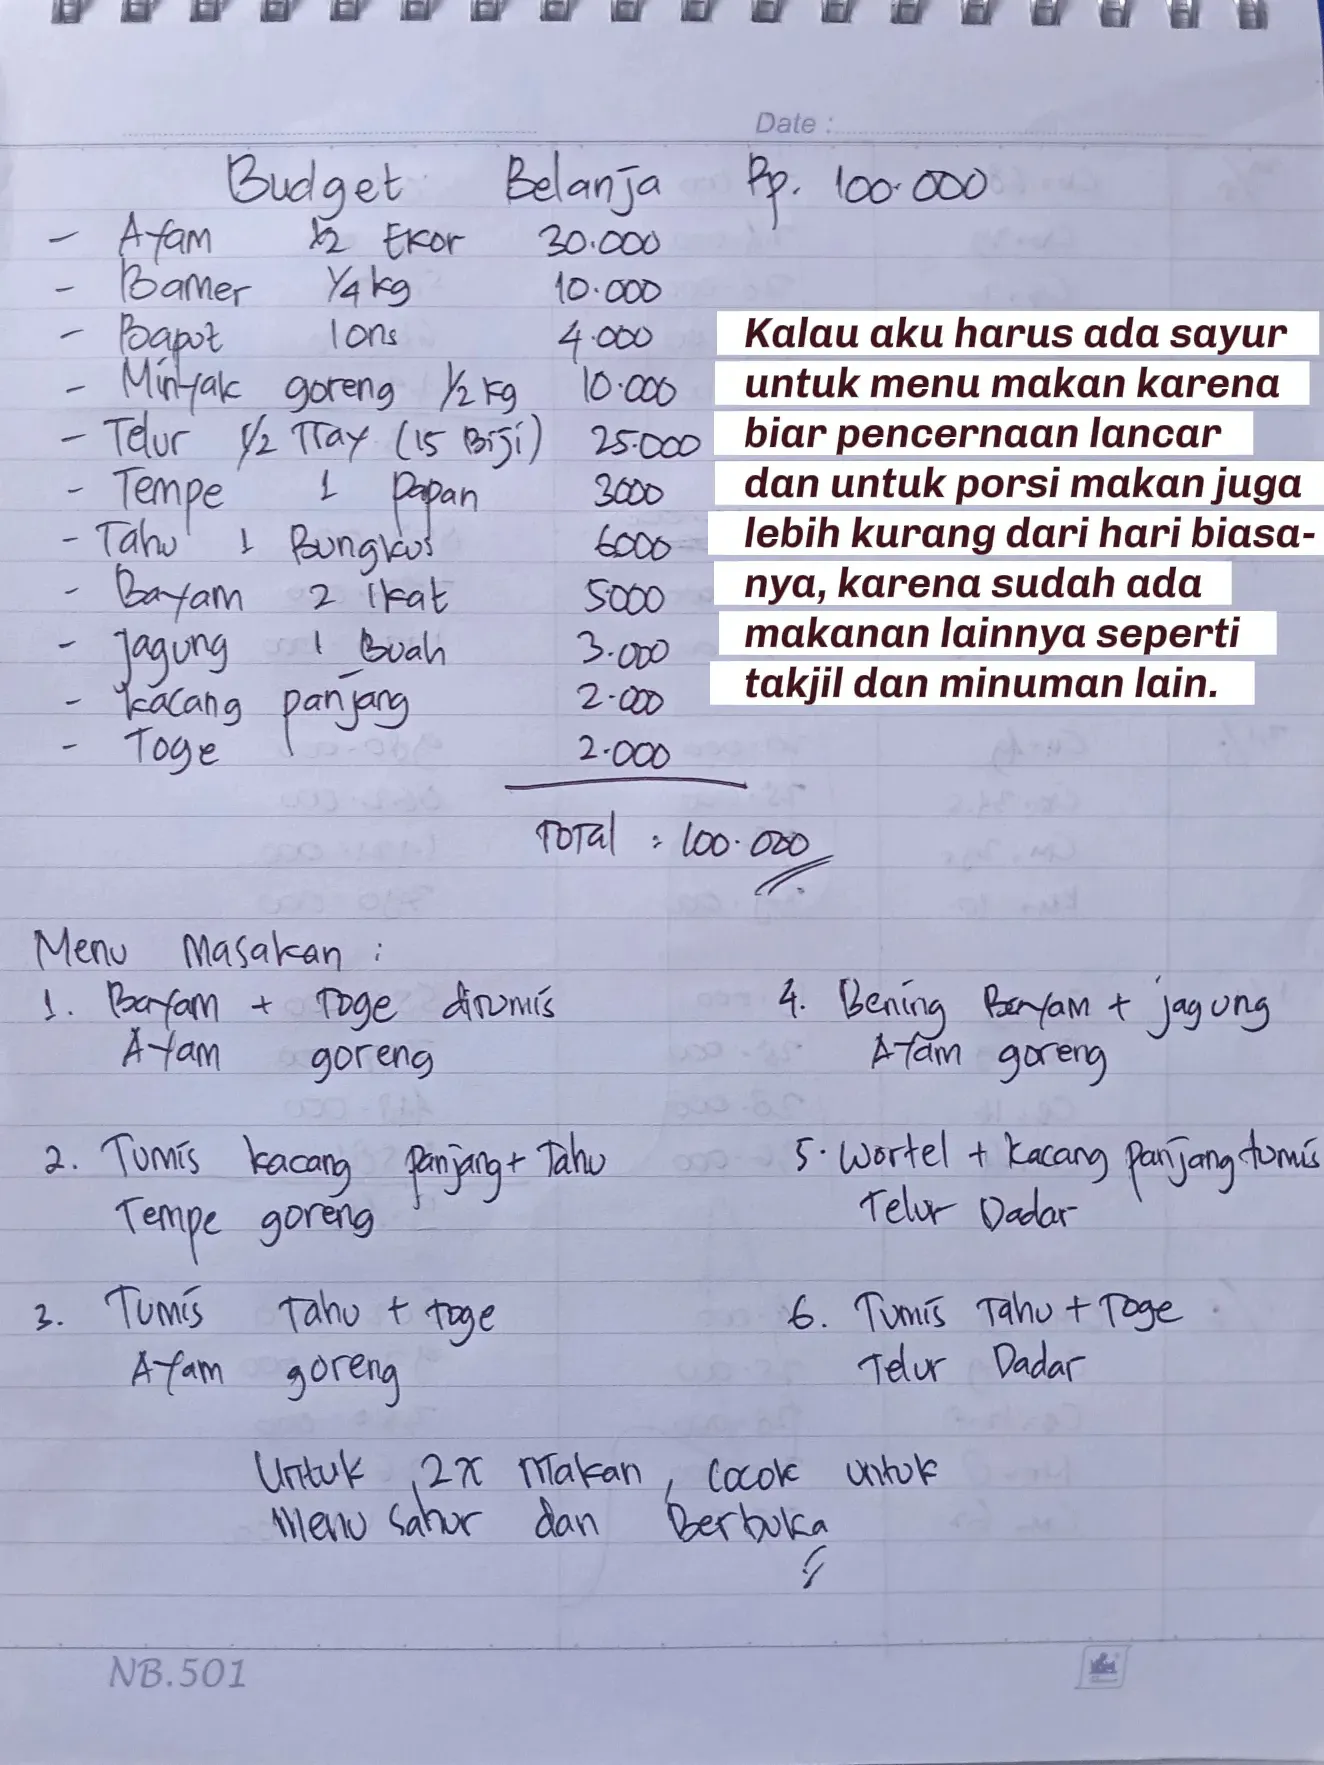 Date :
Budget Belanja Rp. 100.000
- Ayam 1/2 Ekor 30.000
- Bamer 1/4 kg 10.000
- Baput 1 ons 4.000
- Minyak goreng 1/2 kg 10.000
- Telur 1/2 Tray (15 Biji) 25.000
- Tempe 1 papan 3000
- Tahu 1 Bungkus 6000
- Bayam 2 ikat 5000
- Jagung 1 Buah 3.000
- Kacang panjang 2.000
- Toge 2.000
Total : 100.000
Kalau aku harus ada sayur
untuk menu makan karena
biar pencernaan lancar
dan untuk porsi makan juga
lebih kurang dari hari biasa-
nya, karena sudah ada
makanan lainnya seperti
takjil dan minuman lain.
Menu Masakan :
1. Bayam + Toge ditumis
Ayam goreng
2. Tumis kacang panjang + Tahu
Tempe goreng
3. Tumis Tahu + Toge
Ayam goreng
4. Bening Bayam + jagung
Ayam goreng
5. Wortel + Kacang panjang tumis
Telur Dadar
6. Tumis Tahu + Toge
Telur Dadar
Untuk 2x Makan, Cocok untuk
Menu Sahur dan Berbuka
NB.501